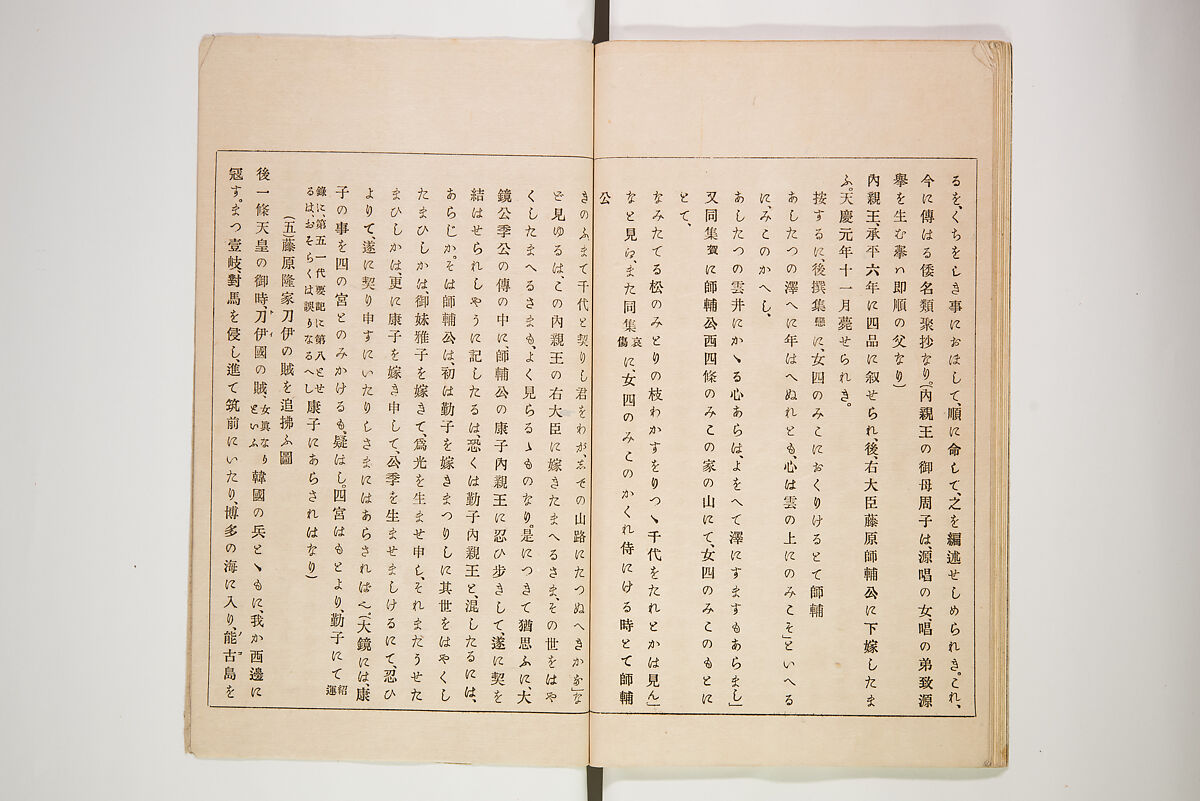 るを、くちをしき事におほして、順に命して、之を編述せしめられき。これ、
今に傳はる倭名類聚抄なり。(内親王の御母周子は、源唱の女唱の弟致源
擧を生む擧ハ即順の父なり)
内親王、承平六年に四品に叙せられ、後、右大臣藤原師輔公に下嫁したま
ふ。天慶元年十一月薨せられき。
按するに、後撰集戀に、女四のみこにおくりけるとて師輔
あしたつの澤へに年はへぬれとも、心は雲の上にのみこそ」といへる
に、みこのかへし、
あしたつの雲井にかゝる心あらは、よをへて澤にすますもあらまし」
又同集賀に師輔公西四條のみこの家の山にて、女四のみこのもとに
とて、
なみたてる松のみとりの枝わかすをりつゝ千代をたれとかは見ん」
なと見ゆ、また同集哀傷に、女四のみこのかくれ侍にける時とて師輔
公
きのふまて千代と契りし君をわが、志での山路にたつぬへきかな」な
ど見ゆるは、この内親王の右大臣に嫁きたまへるさま、その世をはや
くしたまへるさまも、よく見らるゝものなり。是につきて猶思ふに大
鏡公季公の傳の中に、師輔公の康子内親王に忍ひ歩きして、遂に契を
結はせられしやうに記したるは、恐くは勤子内親王と、混したるには、
あらじか。そは師輔公は、初は勤子を嫁きまつりしに其世をはやくし
たまひしかは、御妹雅子を嫁きて、爲光を生ませ申し、それまだうせた
まひしかは、更に康子を嫁き申して、公季を生ませましけるにて、忍ひ
よりて、遂に契り申すにいたりしさまにはあらされはへ、(大鏡には、康
子の事を四の宮とのみかけるも、疑はし。四宮はもとより、勤子にて紹運
錄に、第五一代要記に第八とせるは、おそらくは誤りなるへし康子にあらされはなり)
(五)藤原隆家刀伊の賊を追拂ふ圖
後一條天皇の御時、刀伊國の賊、女眞なりといふ韓國の兵とゝもに、我か西邊に
冦す。まつ壹岐、對馬を侵し、進て筑前にいたり、博多の海に入り、能古島を